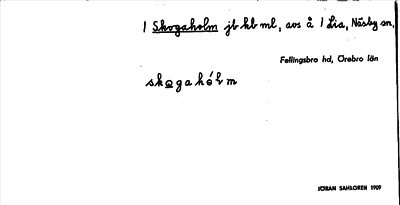 1 Skogaholm jb hb ml, avs å 1 Lia, Näsby sn,
Fellingsbro hd, Örebro län
skogahólm
JÖRAN SAHLGREN 1909